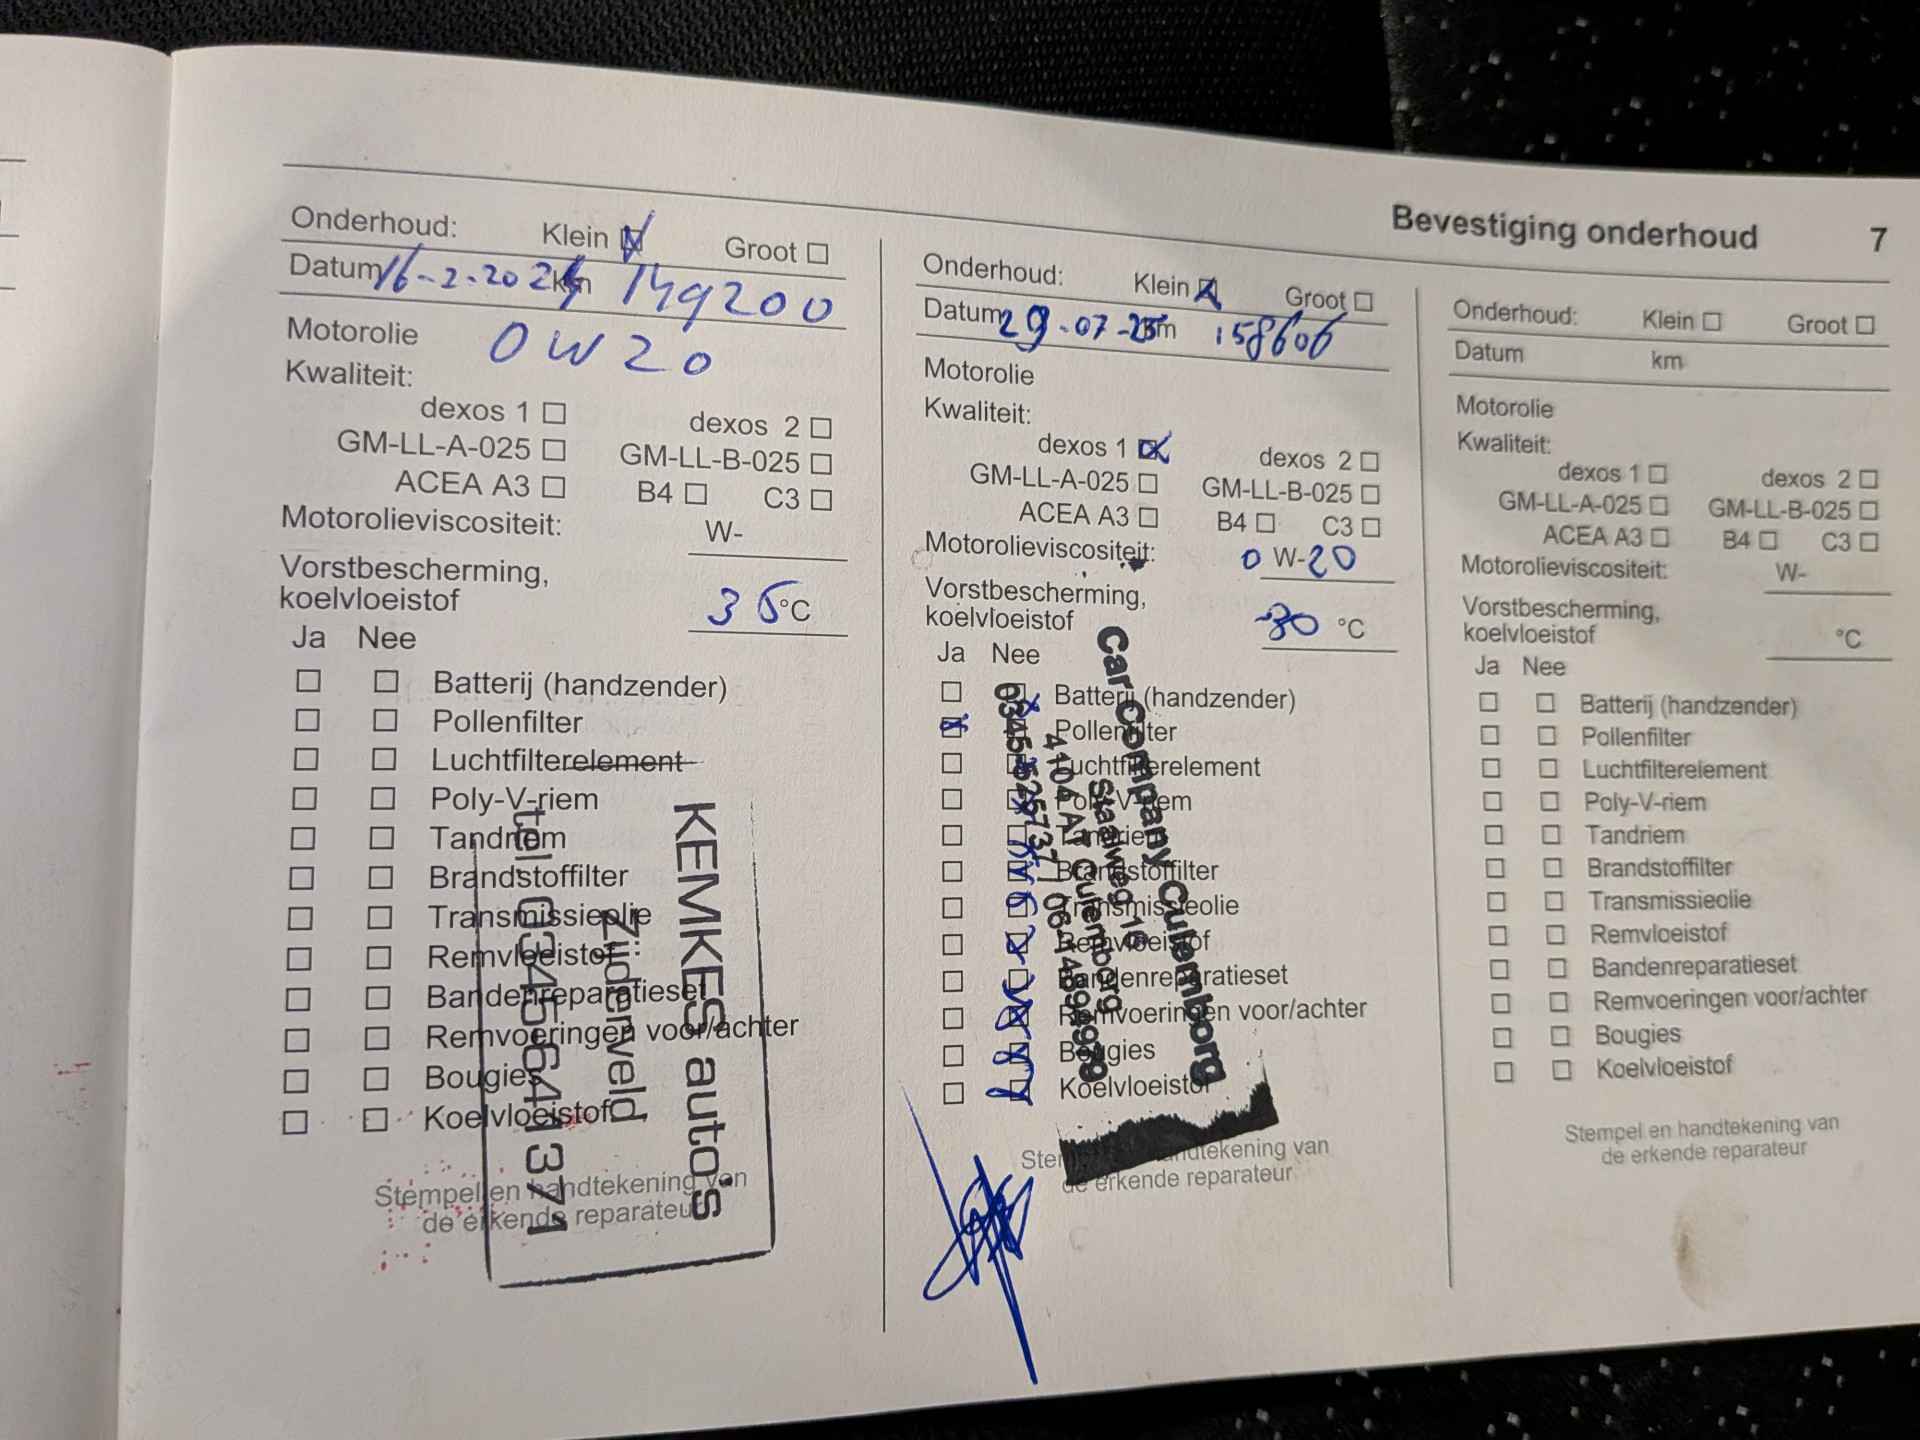 Bevestiging onderhoud 7
Onderhoud: Klein Groot
Datum 16-2-2024 km 149200
Motorolie 0W20
Kwaliteit:
dexos 1 dexos 2
GM-LL-A-025 GM-LL-B-025
ACEA A3 B4 C3
Motorolieviscositeit: W-
Vorstbescherming,
koelvloeistof 36 °C
Ja Nee
Batterij (handzender)
Pollenfilter
Luchtfilterelement
Poly-V-riem
Tandriem
Brandstoffilter
Transmissieolie
Remvloeistof
Bandenreparatieset
Remvoeringen voor/achter
Bougies
Koelvloeistof
Stempel en handtekening van
de erkende reparateur
KEMKES auto's
Zijderveld
tel. 0345-641371
Onderhoud: Klein Groot
Datum 29-07-25 km 158606
Motorolie
Kwaliteit:
dexos 1 dexos 2
GM-LL-A-025 GM-LL-B-025
ACEA A3 B4 C3
Motorolieviscositeit: 0 W-20
Vorstbescherming,
koelvloeistof -30 °C
Ja Nee
Batterij (handzender)
Pollenfilter
Luchtfilterelement
Poly-V-riem
Tandriem
Brandstoffilter
Transmissieolie
Remvloeistof
Bandenreparatieset
Remvoeringen voor/achter
Bougies
Koelvloeistof
Stempel en handtekening van
de erkende reparateur
Car Company Culemborg
Staalweg 16
4104 AT Culemborg
Onderhoud: Klein Groot
Datum km
Motorolie
Kwaliteit:
dexos 1 dexos 2
GM-LL-A-025 GM-LL-B-025
ACEA A3 B4 C3
Motorolieviscositeit: W-
Vorstbescherming,
koelvloeistof °C
Ja Nee
Batterij (handzender)
Pollenfilter
Luchtfilterelement
Poly-V-riem
Tandriem
Brandstoffilter
Transmissieolie
Remvloeistof
Bandenreparatieset
Remvoeringen voor/achter
Bougies
Koelvloeistof
Stempel en handtekening van
de erkende reparateur